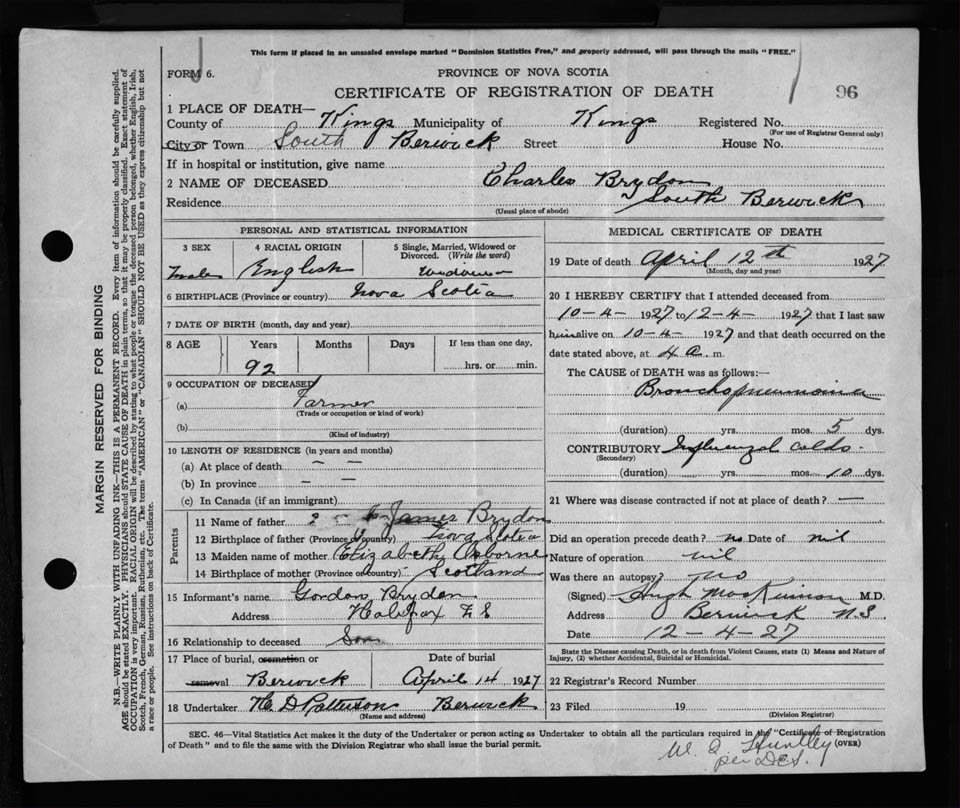 This form if placed in an unsealed envelope marked "Dominion Statistics Free," and properly addressed, will pass through the mails "FREE."
FORM 6.
PROVINCE OF NOVA SCOTIA
CERTIFICATE OF REGISTRATION OF DEATH
96
1 PLACE OF DEATH—
County of Kings Municipality of Kings Registered No.
(For use of Registrar General only)
City or Town South Berwick Street House No.
If in hospital or institution, give name
2 NAME OF DECEASED Charles Brydon
Residence South Berwick
(Usual place of abode)
PERSONAL AND STATISTICAL INFORMATION
3 SEX 4 RACIAL ORIGIN 5 Single, Married, Widowed or Divorced. (Write the word)
male English
6 BIRTHPLACE (Province or country) Nova Scotia
7 DATE OF BIRTH (month, day and year)
8 AGE Years Months Days If less than one day,
92 hrs. or min.
9 OCCUPATION OF DECEASED
(a) Farmer
(Trade or occupation or kind of work)
(b)
(Kind of industry)
10 LENGTH OF RESIDENCE (in years and months)
(a) At place of death — —
(b) In province — —
(c) In Canada (if an immigrant)
Parents
11 Name of father James Brydon
12 Birthplace of father (Province or country) Nova Scotia
13 Maiden name of mother Elizabeth Osborne
14 Birthplace of mother (Province or country) Scotland
15 Informant's name Gordon Brydon
Address Halifax N S
16 Relationship to deceased Son
17 Place of burial, cremation or removal Berwick
Date of burial April 14 1927
18 Undertaker H. D Patterson Berwick
(Name and address)
MEDICAL CERTIFICATE OF DEATH
19 Date of death April 12th 1927
(Month, day and year)
20 I HEREBY CERTIFY that I attended deceased from
10-4- 1927 to 12-4- 1927 that I last saw
him alive on 10-4- 1927 and that death occurred on the
date stated above, at 4 a. m.
The CAUSE of DEATH was as follows:—
Bronchopneumonia
(duration) yrs. mos. 5 dys.
CONTRIBUTORY Influenzal colds
(Secondary)
(duration) yrs. mos. 10 dys.
21 Where was disease contracted if not at place of death? —
Did an operation precede death? no Date of nil
Nature of operation nil
Was there an autopsy? no
(Signed) Hugh MacKinnon M.D.
Address Berwick N.S
Date 12-4-27
State the Disease causing Death, or in death from Violent Causes, state (1) Means and Nature of
Injury, (2) whether Accidental, Suicidal or Homicidal.
22 Registrar's Record Number
23 Filed 19
(Division Registrar)
SEC. 46—Vital Statistics Act makes it the duty of the Undertaker or person acting as Undertaker to obtain all the particulars required in the "Certificate of Registration
of Death" and to file the same with the Division Registrar who shall issue the burial permit.
(OVER)
Huntley
per
MARGIN RESERVED FOR BINDING
N.B.—WRITE PLAINLY WITH UNFADING INK—THIS IS A PERMANENT RECORD. Every item of information should be carefully supplied.
AGE should be stated EXACTLY. PHYSICIANS should STATE CAUSE OF DEATH in plain terms, so that it may be properly classified. Exact statement of
OCCUPATION is very important. RACIAL ORIGIN will be described by stating to what people or tongue the deceased person belonged, whether English, Irish,
Scotch, French, German, Russian, Ruthenian, etc. The terms "AMERICAN" or "CANADIAN" SHOULD NOT BE USED as they express citizenship but not
a race or people. See instructions on back of Certificate.